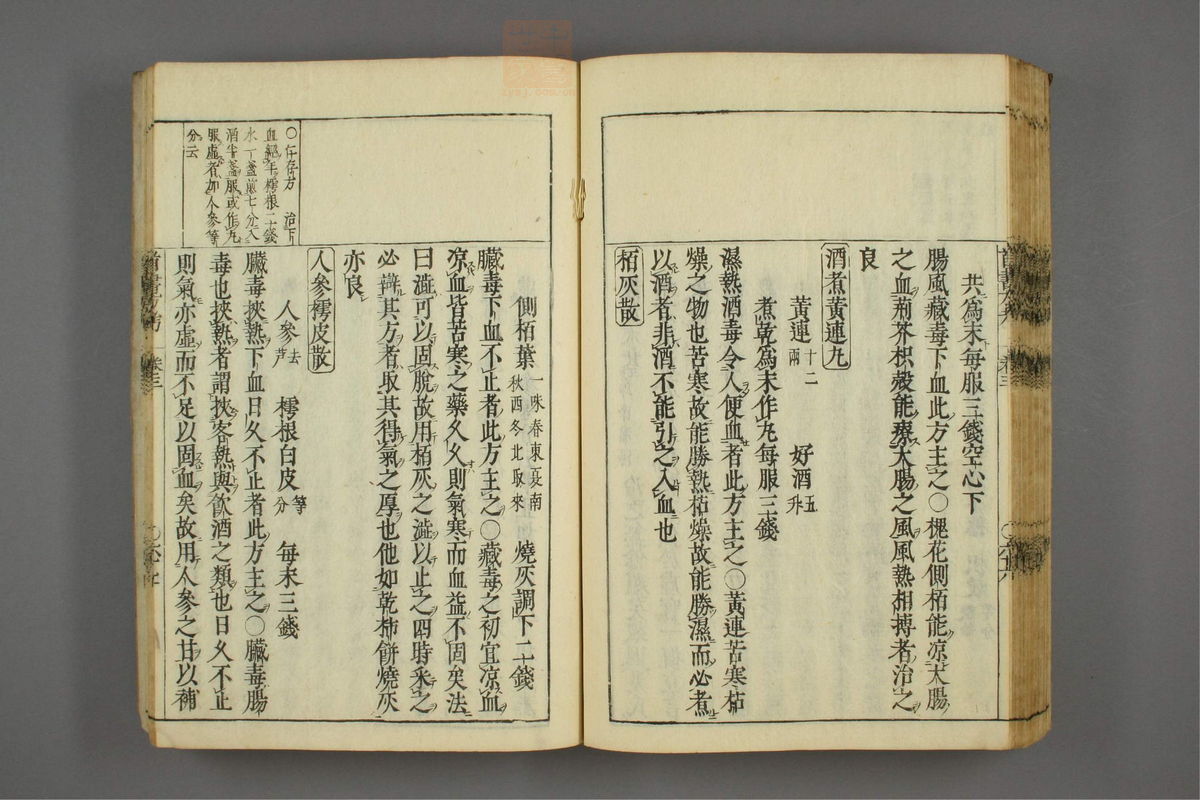 共爲末每服三錢空心下
腸風藏毒下血此方主之○槐花側栢能凉大腸
之血荊芥枳殼能療大腸之風風熱相搏者治之
良
酒煮黃連丸
黃連十二兩 好酒五升
煮乾爲末作丸每服三錢
濕熱酒毒令人便血者此方主之○黃連苦寒枯
燥之物也苦寒故能勝熱枯燥故能勝濕而必煮
以酒者非酒不能引之入血也
栢灰散
○仁存方 治下
血經年樗根二十錢
水一盞煎七分入
酒半盞服或作丸
服虛者加人參等
分云
側栢葉一味春東夏南秋西冬北取來 燒灰調下二十錢
臟毒下血不止者此方主之○藏毒之初宜凉血
凉血皆苦寒之藥久久則氣寒而血益不固矣法
曰澁可以固脫故用栢灰之澁以止之四時釆之
必辨其方者取其得氣之厚也他如乾柿餅燒灰
亦良
人參樗皮散
人參去芦 樗根白皮等分 每末三錢
臟毒挾熱下血日久不止者此方主之○臟毒腸
毒也挾熱者謂挾客熱與飮酒之類也日久不止
則氣亦虛而不足以固血矣故用人參之甘以補